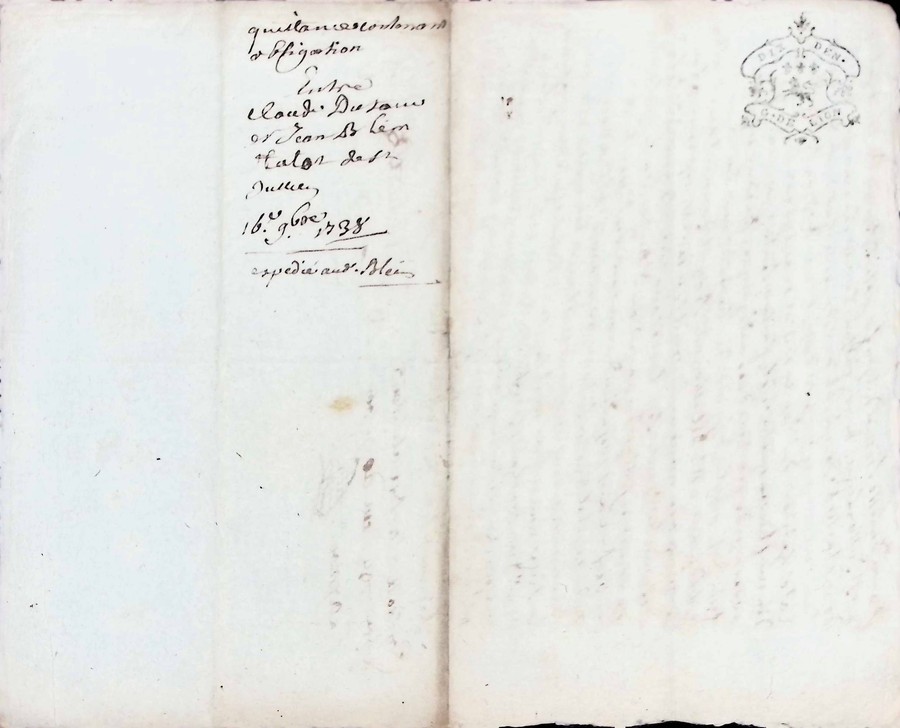 quittance contenant
obligation
Entre
Claude
et Jean Blein
de St
Jullien
16.e 9.bre 1738
expedié aud. Blein
DIX DEN.
G. DE LION